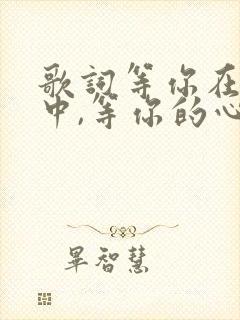 歌詞等你在
中,等你的心
畢智慧